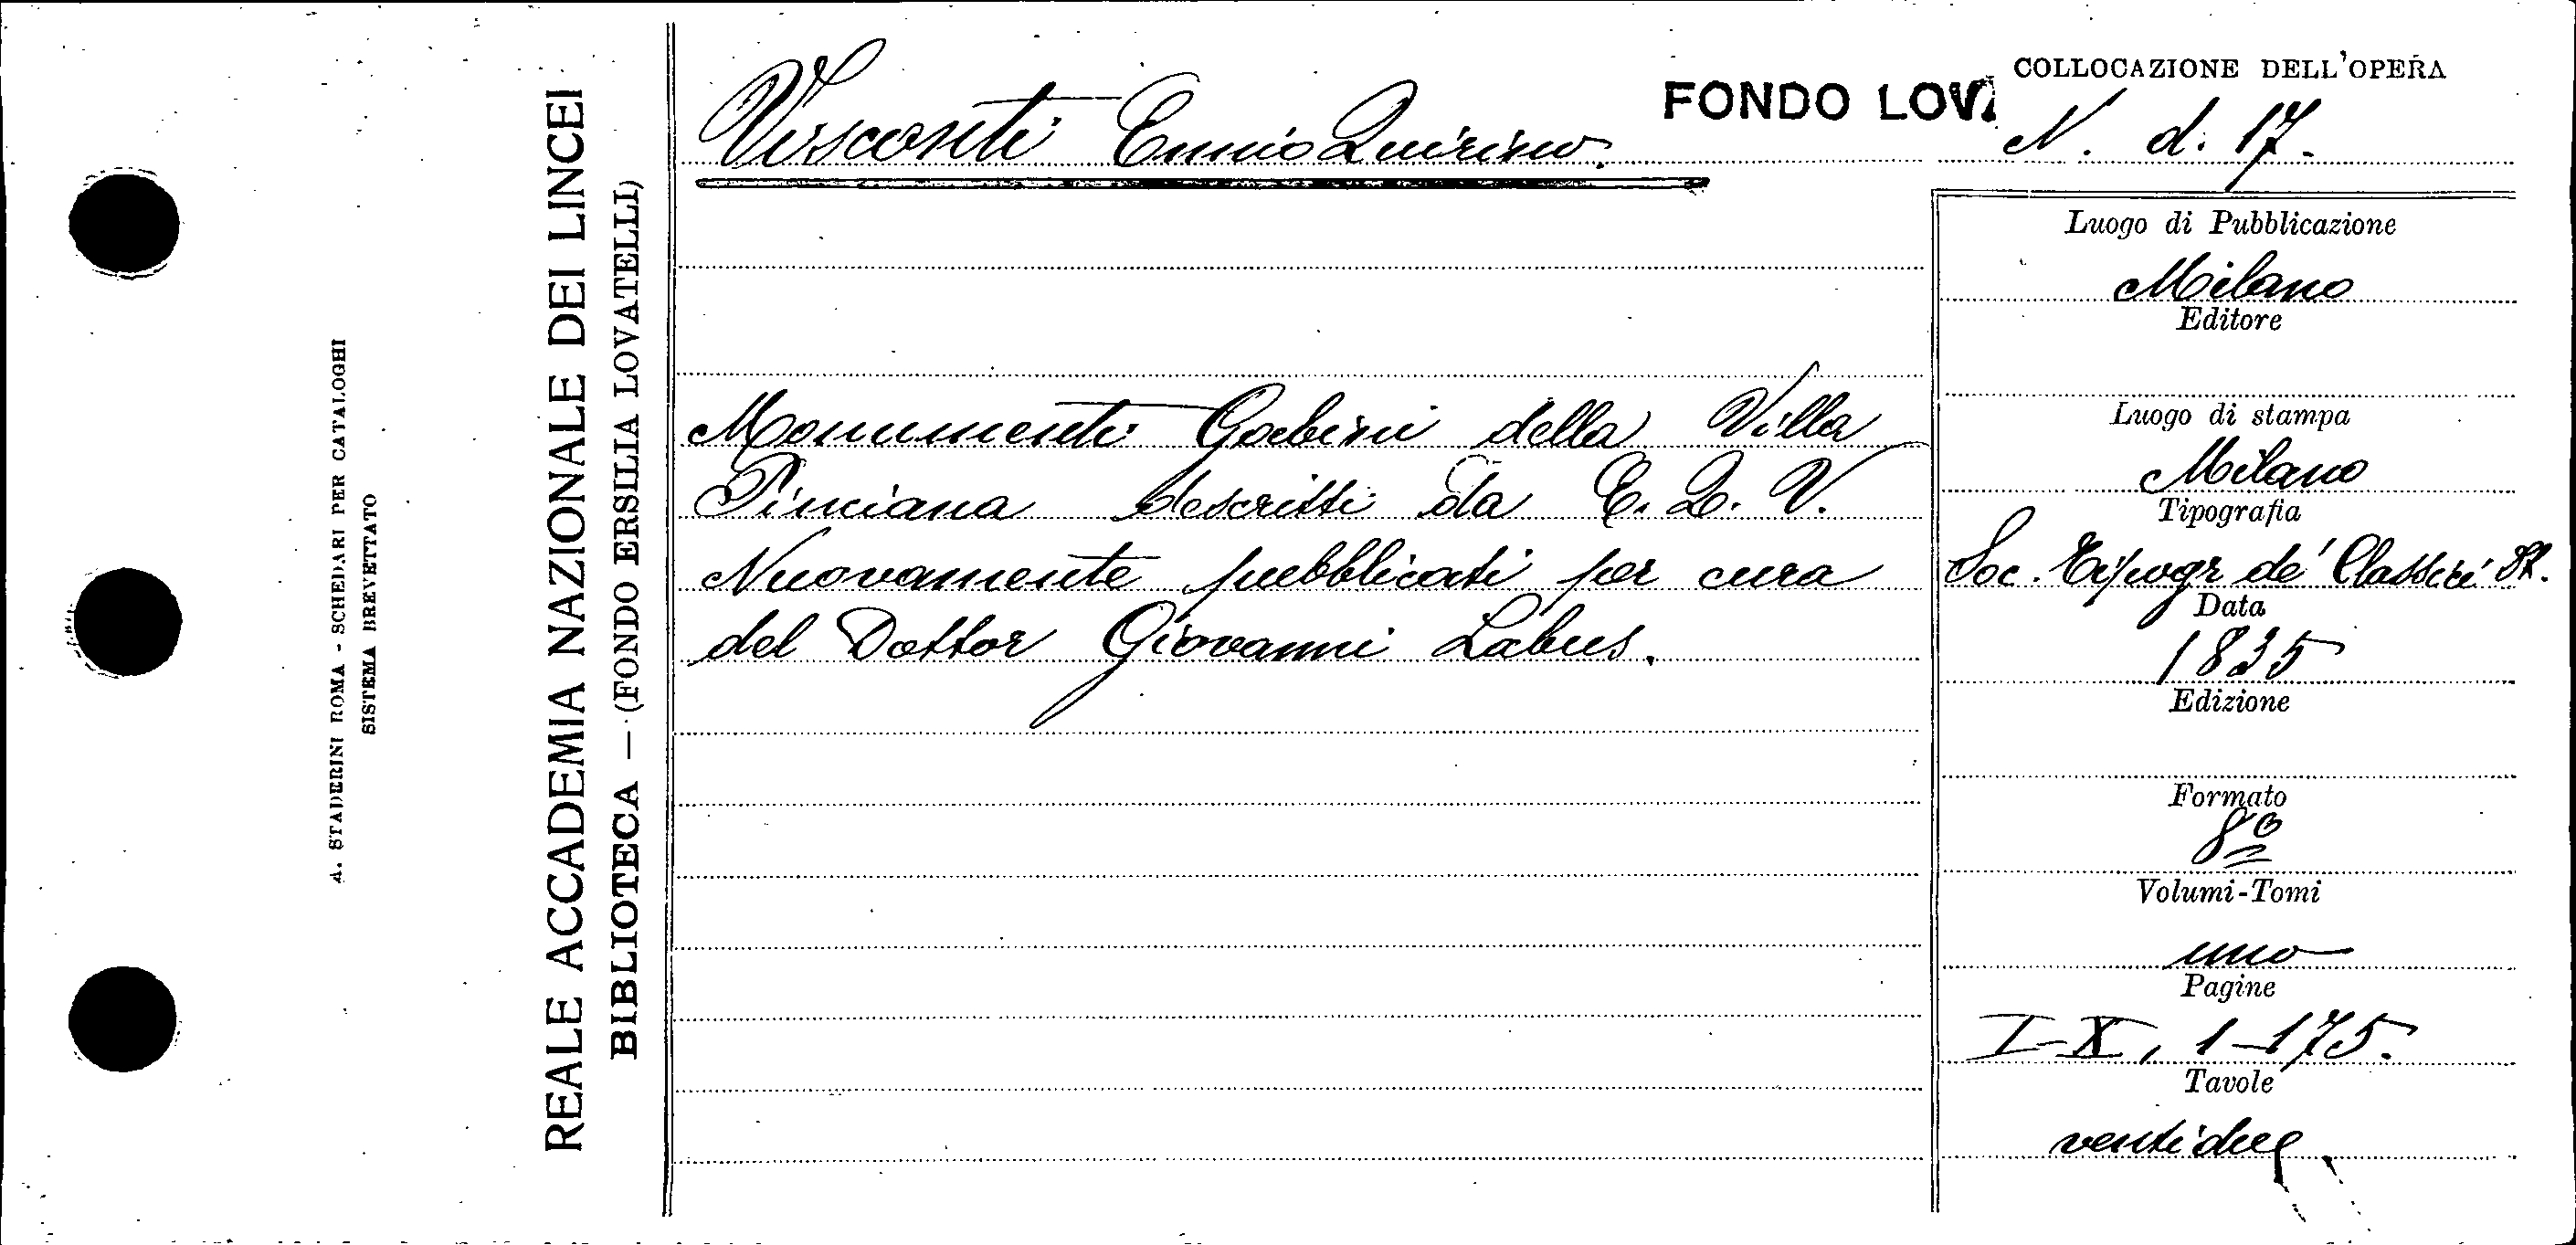 A. STADERINI ROMA - SCHEDARI PER CATALOGHI
SISTEMA BREVETTATO
REALE ACCADEMIA NAZIONALE DEI LINCEI
BIBLIOTECA — (FONDO ERSILIA LOVATELLI)
Visconti Ennio Quirino.
FONDO LOVA
Monumenti Gabini della Villa
Pinciana descritti da E. Q. V.
Nuovamente pubblicati per cura
del Dottor Giovanni Labus.
COLLOCAZIONE DELL'OPERA
N. d. 17.
Luogo di Pubblicazione
Milano
Editore
Luogo di stampa
Milano
Tipografia
Soc. Tipogr de' Classici It.
Data
1835
Edizione
Formato
8º
Volumi-Tomi
uno
Pagine
I-X, 1-175.
Tavole
ventidue